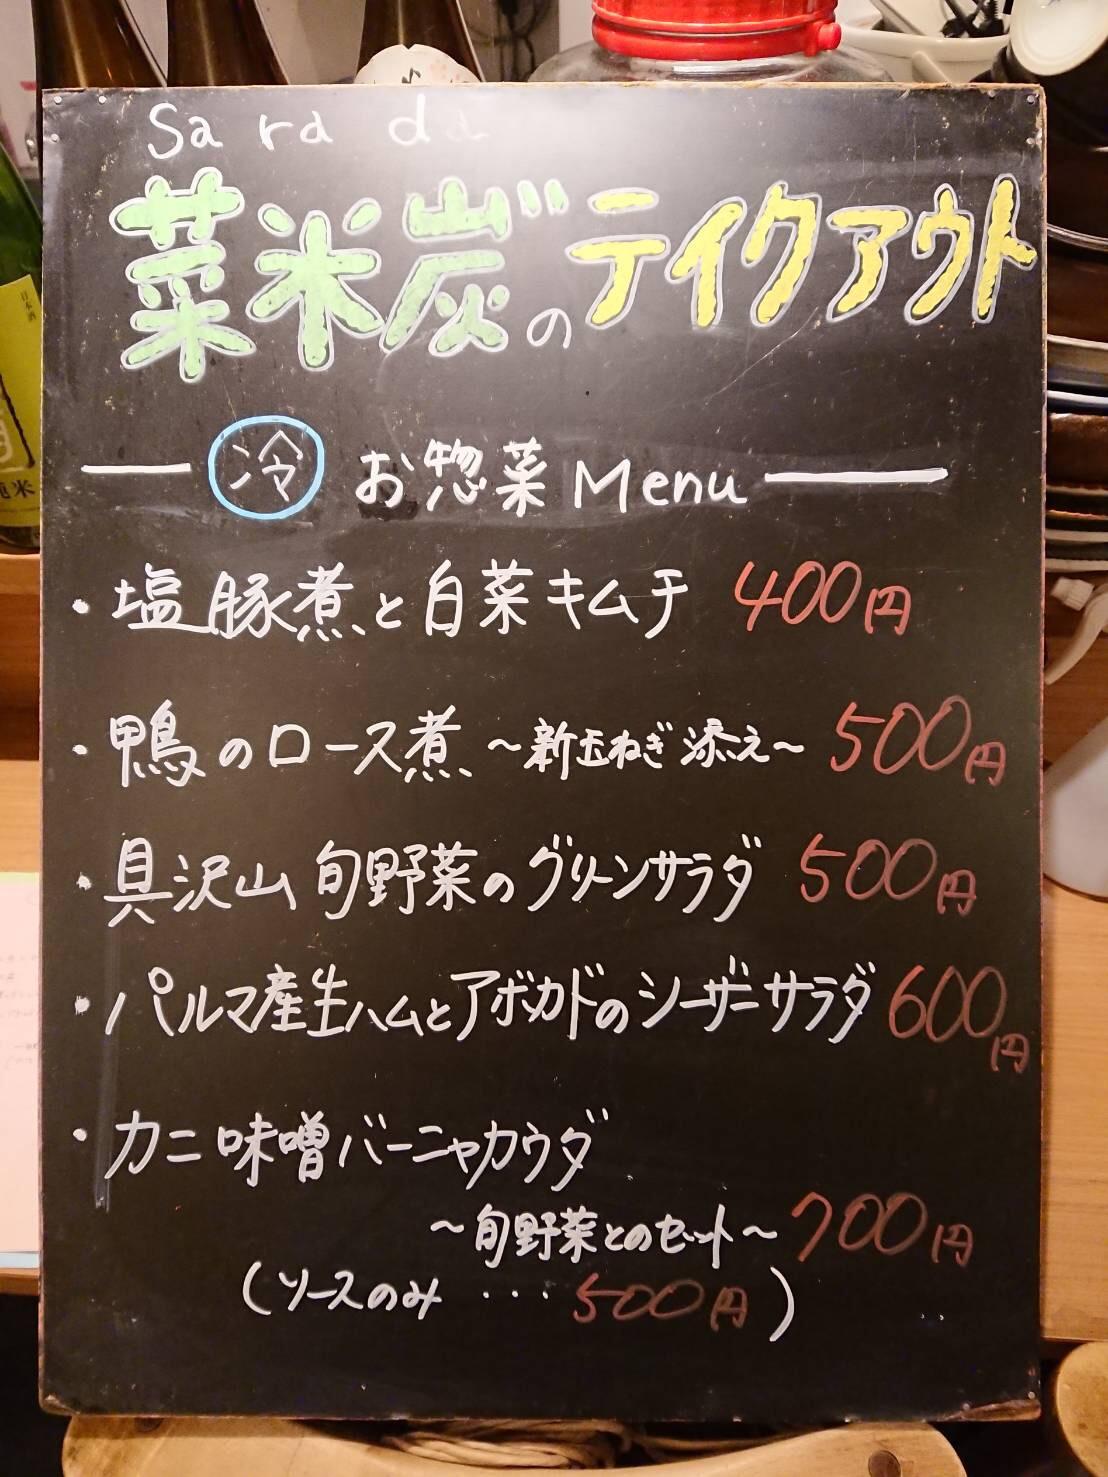 Sa ra da
菜米炭゛のテイクアウト
冷 お惣菜 Menu
・塩豚煮と白菜キムチ 400円
・鴨のロース煮 〜新玉ねぎ添え〜 500円
・具沢山 旬野菜のグリーンサラダ 500円
・パルマ産生ハムとアボカドのシーザーサラダ 600円
・カニ味噌バーニャカウダ
〜旬野菜とのセット〜 700円
(ソースのみ ・・・ 500円)
日本酒
純米